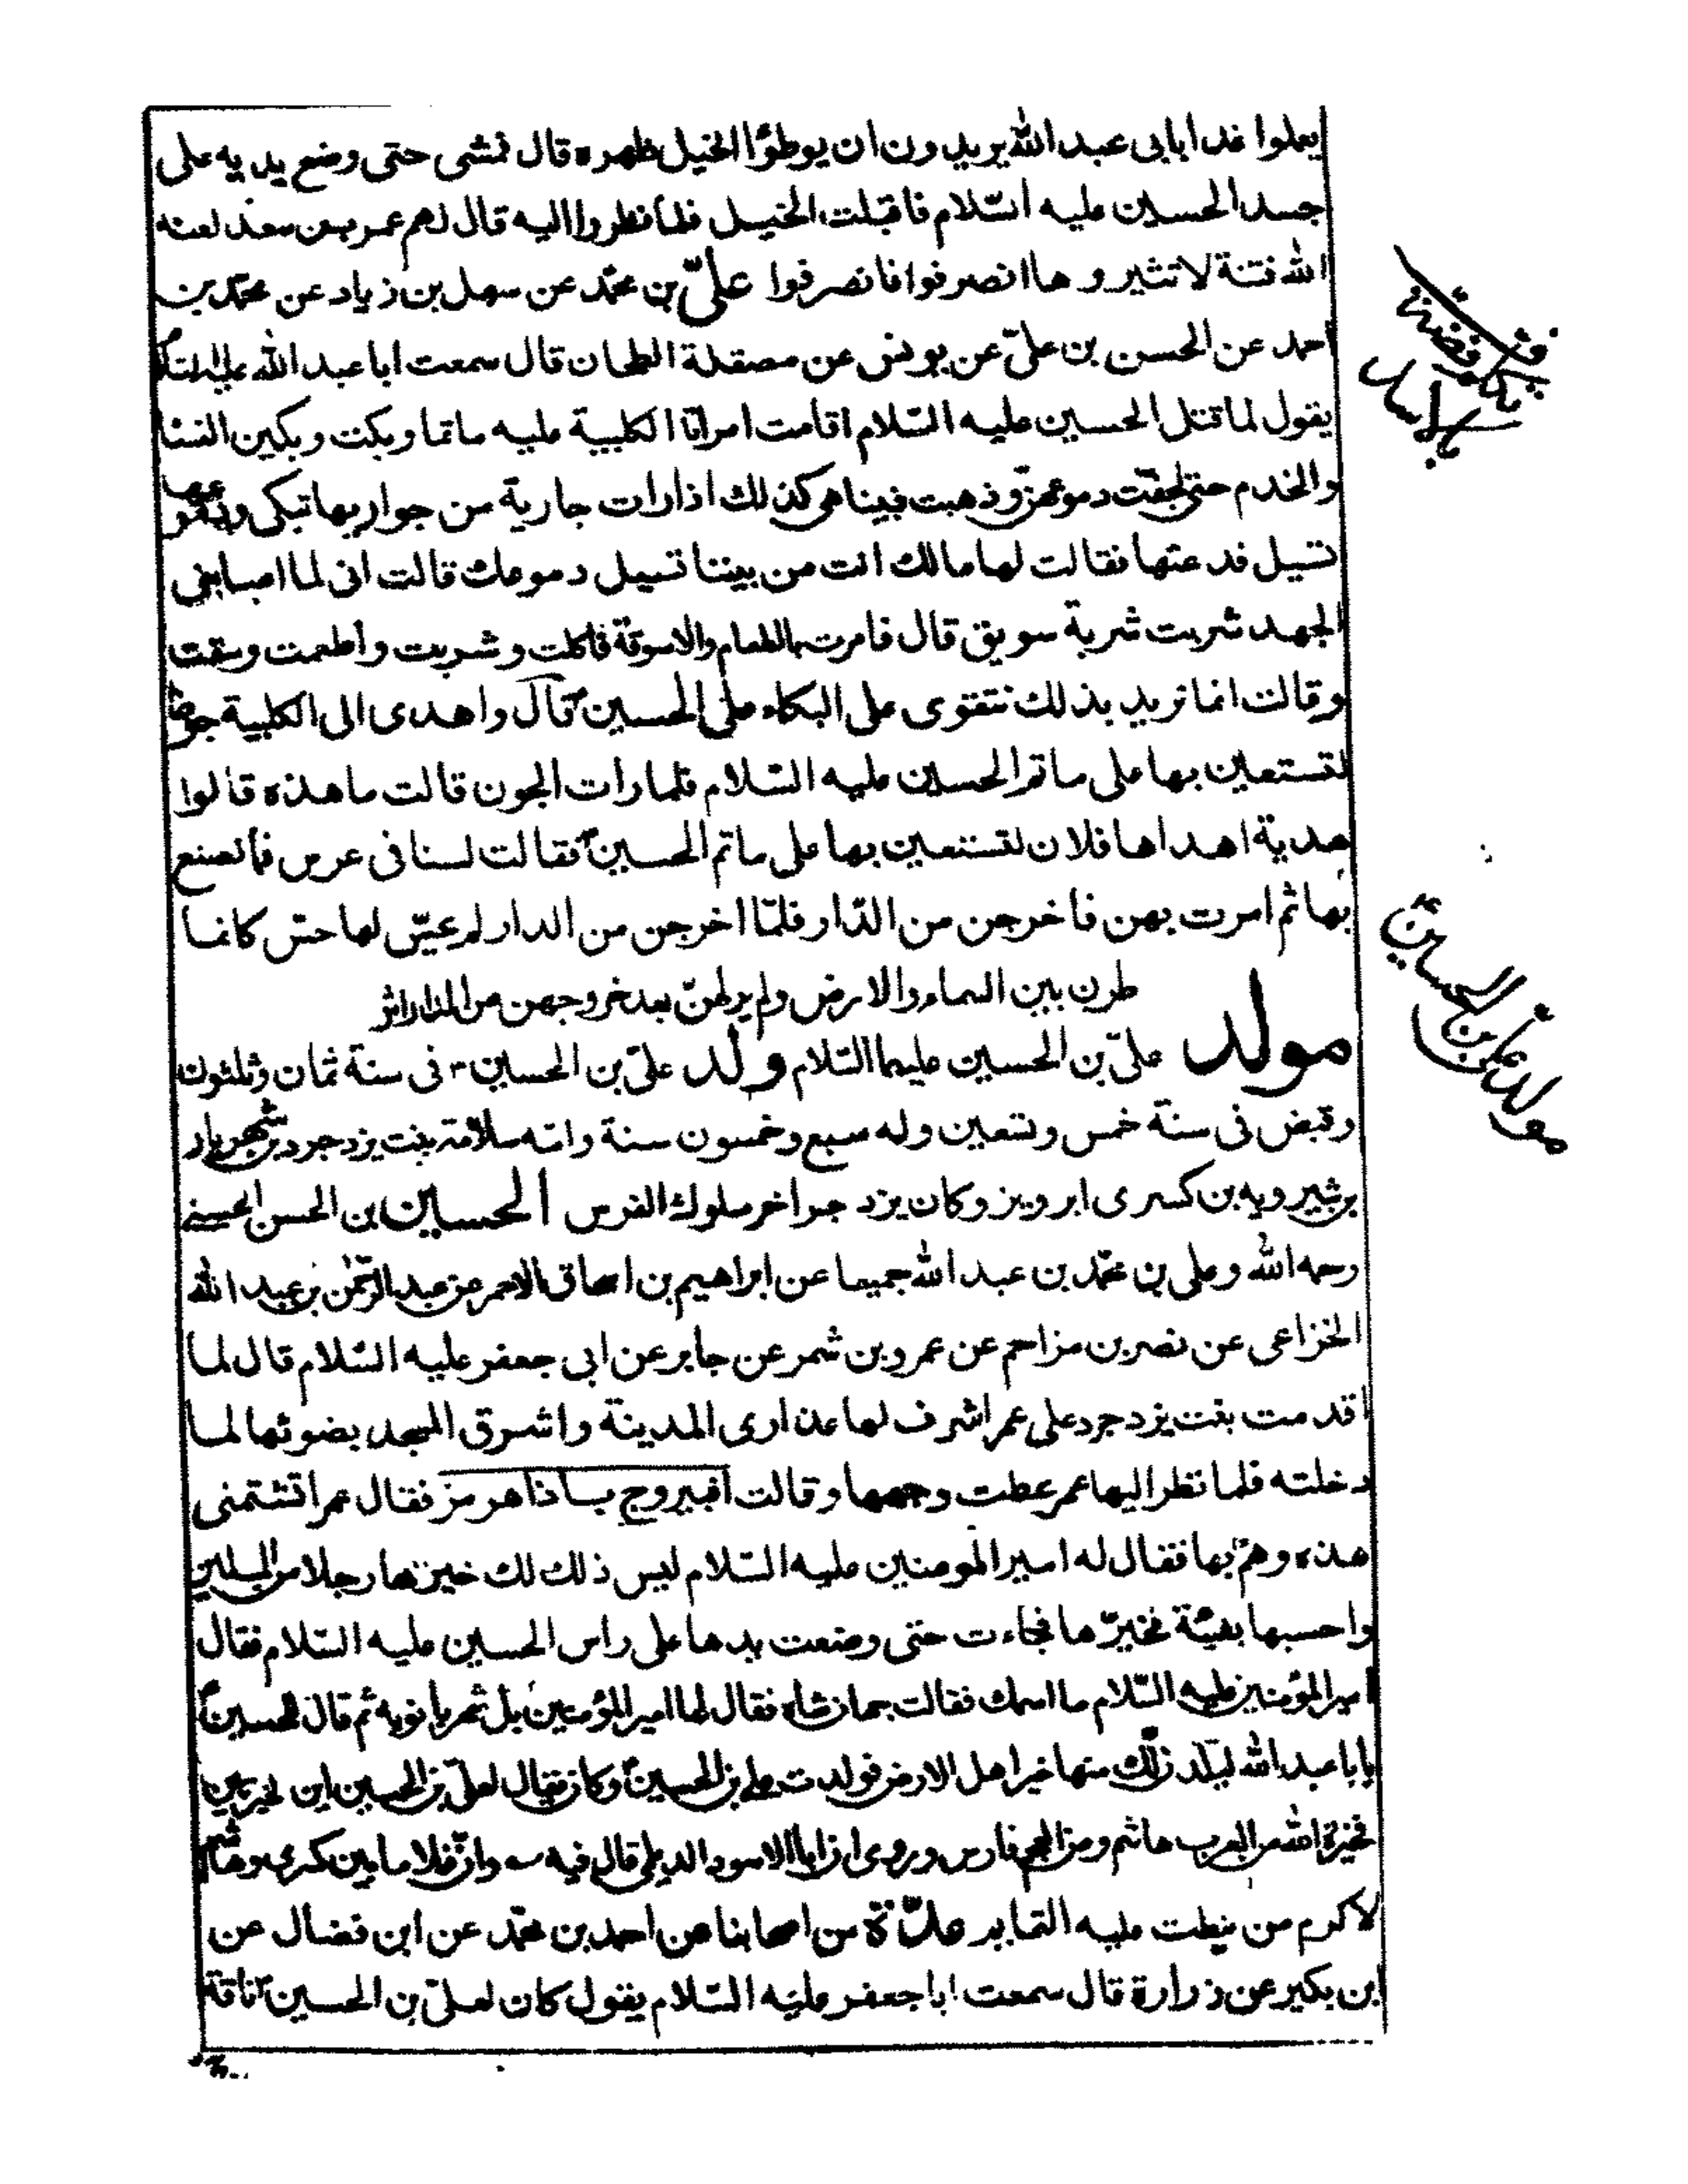 يعملوا غدا بابى عبد الله يريدون ان يوطؤا الخيل ظهره قال فمشى حتى وضع يديه على
جسد الحسين عليه السّلام فاقبلت الخيل فلما نظروا اليه قال لهم عمر بن سعد لعنه
الله فتنة لا تثيروها انصرفوا فانصرفوا علىّ بن محمّد عن سهل بن زياد عن محمّد بن
احمد عن الحسن بن علىّ عن يونس عن مصقلة الطحان قال سمعت ابا عبد الله عليه السّلام
يقول لما قتل الحسين عليه السّلام اقامت امراتا الكلبية عليه ماتما وبكت وبكين النسا
والخدم حتى جفت دموعهن وذهبت فبينا هى كذلك اذا رات جارية من جواريها تبكى ودموعها
تسيل فدعتها فقالت لها مالك انت من بيننا تسيل دموعك قالت انى لما اصابنى
الجهد شربت شربة سويق قال فامرت بالطعام والاسوقة فاكلت وشربت وأطعمت وسقت
وقالت انما نريد بذلك نتقوى على البكاء على الحسين قال واهدى الى الكلبية جونا
لتستعين بها على ماتم الحسين عليه السّلام فلما رات الجون قالت ما هذه قالوا
هدية اهداها فلان لتستعين بها على ماتم الحسين فقالت لسنا فى عرس فما نصنع
بها ثم امرت بهن فاخرجن من الدّار فلمّا اخرجن من الدار لم يحسّ لها حسّ كانما
طرن بين السماء والارض ولم ير لهنّ بعد خروجهن من الدار اثر
مولد علىّ بن الحسين عليهما السّلام ولد علىّ بن الحسين فى سنة ثمان وثلثون
وقبض فى سنة خمس وتسعين وله سبع وخمسون سنة وامه سلامة بنت يزدجرد بن شهريار
بن شيرويه بن كسرى ابرويز وكان يزدجر اخر ملوك الفرس الحسين بن الحسن الحسينى
رحمه الله وعلى بن محمّد بن عبد الله جميعا عن ابراهيم بن اسحاق الاحمر عن عبد الرحمٰن بن عبد الله
الخزاعى عن نصر بن مزاحم عن عمرو بن شمر عن جابر عن ابى جعفر عليه السّلام قال لما
اقدمت بنت يزدجرد على عمر اشرف لها عذارى المدينة واشرق المسجد بضوئها لما
دخلته فلما نظر اليها عمر غطت وجهها وقالت افيروج بادا هرمز فقال عمر اتشتمنى
هذه وهمّ بها فقال له امير المومنين عليه السّلام ليس ذلك لك خيرها رجلا من المسلمين
واحسبها بفيئه فخيّرها فجاءت حتى وضعت يدها على راس الحسين عليه السّلام فقال
امير المؤمنين عليه السّلام ما اسمك فقالت جهان شاه فقال لها امير المؤمنين بل شهربانويه ثم قال للحسين
يا با عبد الله ليلدن لك منها خير اهل الارض فولدت على بن الحسين وكان يقال لعلىّ بن الحسين ابن الخيرتين
فخيرة الله من العرب هاشم ومن العجم فارس وروى ان ابا الاسود الديلى قال فيه وان غلاما بين كسرى وهاشم
لاكرم من نيطت عليه التمايم عدّة من اصحابنا عن احمد بن محمّد عن ابن فضال عن
ابن بكير عن زرارة قال سمعت ابا جعفر عليه السّلام يقول كان لعلىّ بن الحسين ناقة
مولد على بن الحسين